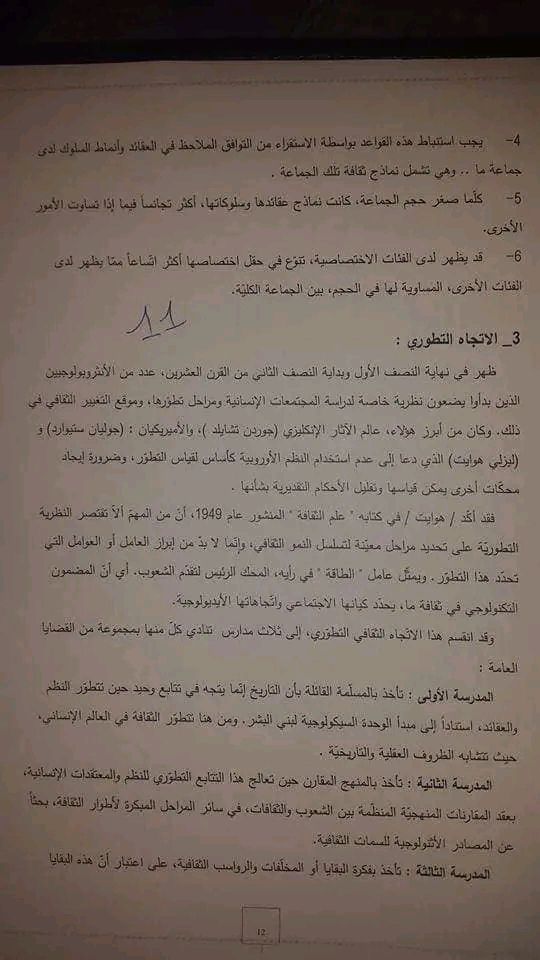 4- يجب استنباط هذه القواعد بواسطة الاستقراء من التوافق الملاحظ في العقائد وأنماط السلوك لدى
جماعة ما .. وهي تشمل نماذج ثقافة تلك الجماعة .
5- كلّما صغر حجم الجماعة، كانت نماذج عقائدها وسلوكاتها، أكثر تجانساً فيما إذا تساوت الأمور
الأخرى.
6- قد يظهر لدى الفئات الاختصاصية، تنوّع في حقل اختصاصها أكثر اتّساعاً ممّا يظهر لدى
الفئات الأخرى، المساوية لها في الحجم، بين الجماعة الكليّة.
11
3_ الاتجاه التطوري :
ظهر في نهاية النصف الأول وبداية النصف الثاني من القرن العشرين، عدد من الأنثروبولوجيين
الذين بدأوا يضعون نظرية خاصة لدراسة المجتمعات الإنسانية ومراحل تطوّرها، وموقع التغيير الثقافي في
ذلك. وكان من أبرز هؤلاء، عالم الآثار الإنكليزي (جوردن تشايلد )، والأميريكيان : (جوليان ستيوارد) و
(ليزلي هوايت) الذي دعا إلى عدم استخدام النظم الأوروبية كأساس لقياس التطوّر، وضرورة إيجاد
محكّات أخرى يمكن قياسها وتقليل الأحكام التقديرية بشأنها .
فقد أكّد / هوايت / في كتابه " علم الثقافة " المنشور عام 1949، أنّ من المهمّ ألاّ تقتصر النظرية
التطوريّة على تحديد مراحل معيّنة لتسلسل النمو الثقافي، وإنّما لا بدّ من إبراز العامل أو العوامل التي
تحدّد هذا التطوّر . ويمثّل عامل " الطاقة " في رأيه، المحك الرئيس لتقدّم الشعوب. أي أنّ المضمون
التكنولوجي في ثقافة ما، يحدّد كيانها الاجتماعي واتّجاهاتها الأيديولوجية.
وقد انقسم هذا الاتّجاه الثقافي التطوّري، إلى ثلاث مدارس تنادي كلّ منها بمجموعة من القضايا
العامة :
المدرسة الأولى : تأخذ بالمسلّمة القائلة بأن التاريخ إنّما يتجه في تتابع وحيد حين تتطوّر النظم
والعقائد، استناداً إلى مبدأ الوحدة السيكولوجية لبني البشر. ومن هنا تتطوّر الثقافة في العالم الإنساني،
حيث تتشابه الظروف العقلية والتاريخيّة .
المدرسة الثانية : تأخذ بالمنهج المقارن حين تعالج هذا التتابع التطوّري للنظم والمعتقدات الإنسانية،
بعقد المقارنات المنهجيّة المنظّمة بين الشعوب والثقافات، في سائر المراحل المبكرة لأطوار الثقافة، بحثاً
عن المصادر الأثنولوجية للسمات الثقافية.
المدرسة الثالثة : تأخذ بفكرة البقايا أو المخلّفات والرواسب الثقافية، على اعتبار أنّ هذه البقايا
12